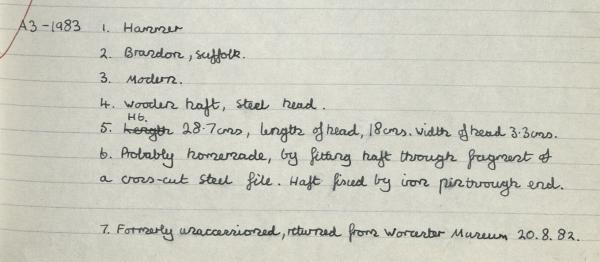 A3-1983 1. Hammer
2. Brandon, Suffolk.
3. Modern.
4. Wooden haft, steel head.
Ht.
5. Length 28.7cms, length of head, 18cms. width of head 3.3cms.
6. Probably homemade, by fitting haft through fragment of
a cross-cut steel file. Haft fixed by iron pin through end.
7. Formerly unaccessioned, returned from Worcester Museum 20.8.82.